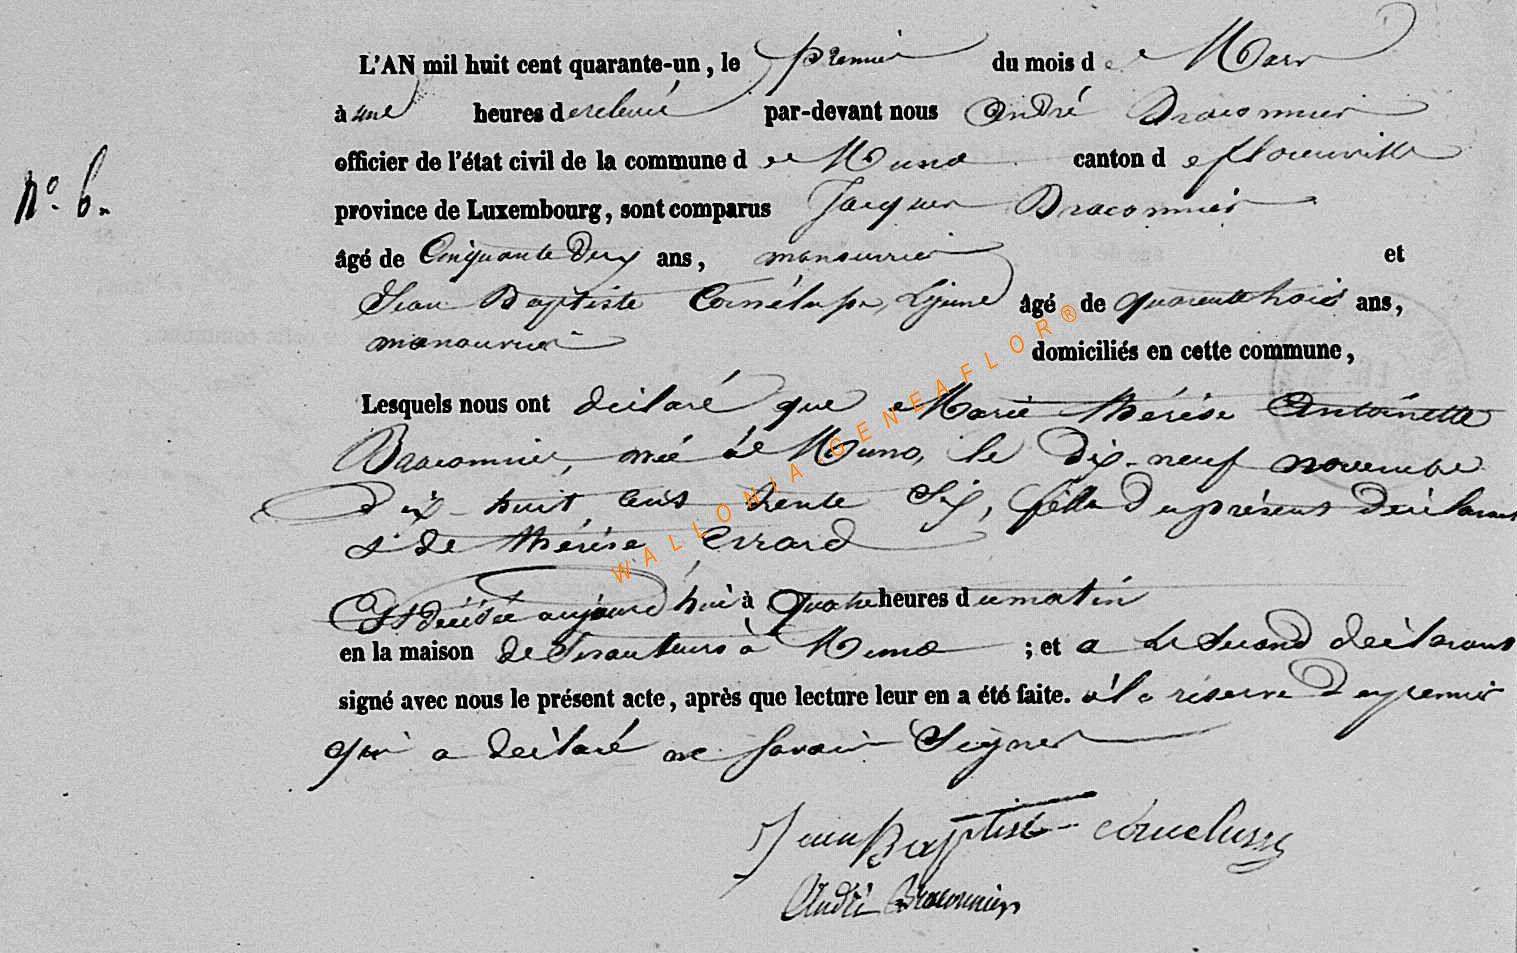 L'AN mil huit cent quarante-un, le premier du mois de Mars
à une heures de relevée par-devant nous André Braconnier
officier de l'état civil de la commune de Muno canton de florenville
N° 6.
province de Luxembourg, sont comparus Jacques Braconnier
âgé de Cinquante Deux ans, manouvrier et
Jean Baptiste Cornélusse, Lejeune âgé de quarente trois ans,
manouvrier domiciliés en cette commune,
Lesquels nous ont déclaré que Marie thérèse Antoinette
Braconnier, née à Muno, le Dix-neuf novembre
Dix-huit cent trente Six, fille Du présent Déclarant
& de thérèse Errard
Est décédée aujourd'hui à Quatre heures du matin
en la maison de Ses auteurs à Muno ; et a Le Second déclarant
signé avec nous le présent acte, après que lecture leur en a été faite. à la réserve Du premier
qui a déclaré ne savoir Signer
Jean Baptiste cornelusse
André Braconnier
WALLONIA.GENEAFLOR®